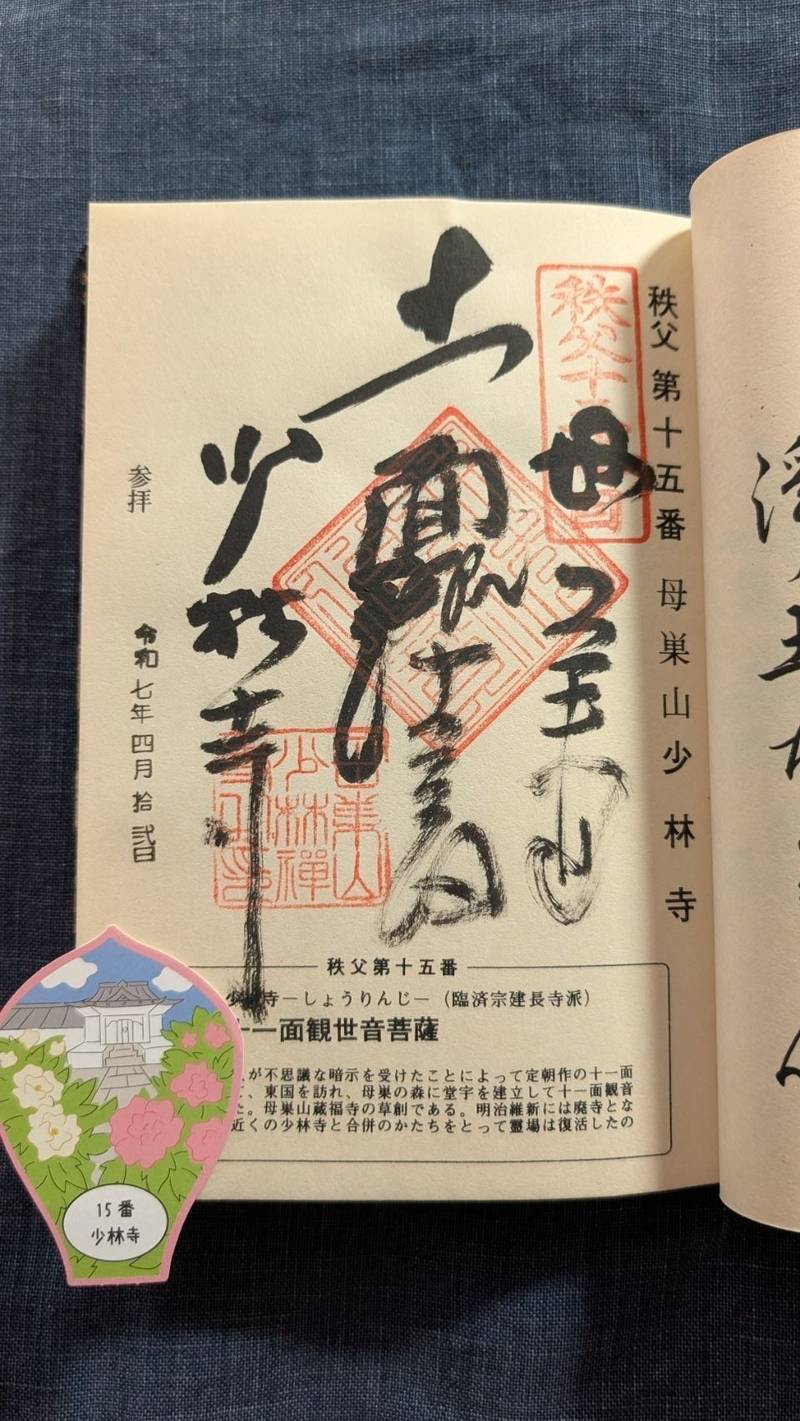 秩父 第十五番 母巣山 少林寺
秩父十五番
母巣山
十一面観世音
少林寺
母巣山
少林禅
参拝
令和七年四月拾弐日
秩父第十五番
寺―しょうりんじ―（臨済宗建長寺派）
十一面観世音菩薩
が不思議な暗示を受けたことによって定朝作の十一面
、東国を訪れ、母巣の森に堂宇を建立して十一面観音
た。母巣山蔵福寺の草創である。明治維新には廃寺とな
近くの少林寺と合併のかたちをとって霊場は復活したの
15番
少林寺